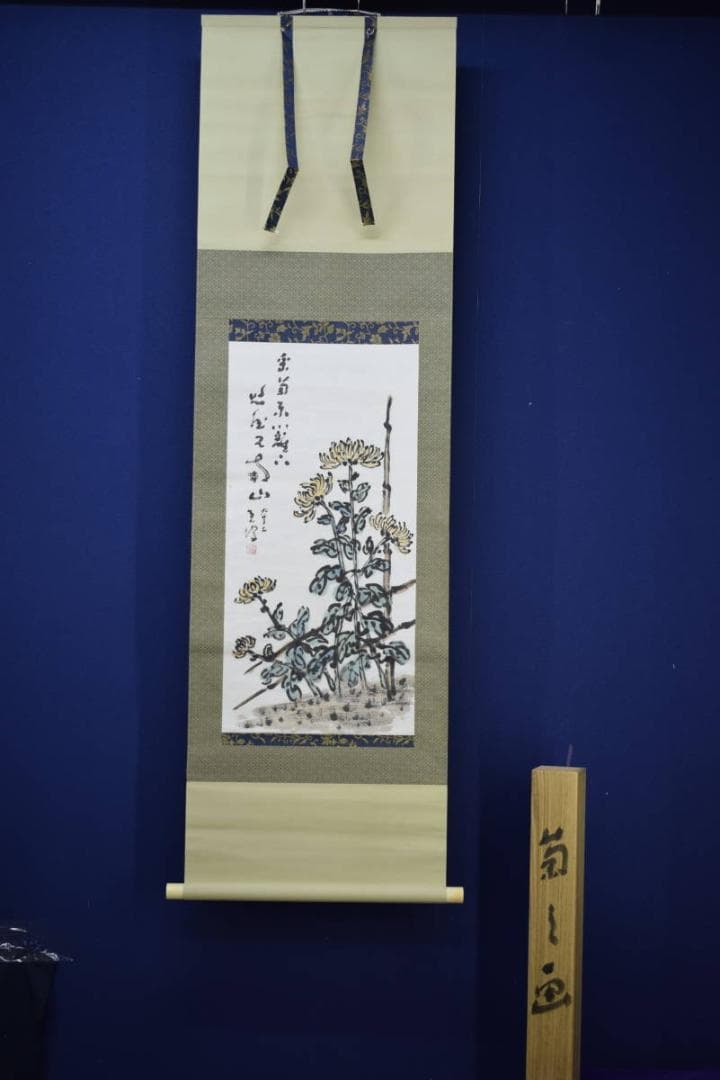 采菊東籬下
悠然見南山
菊之画